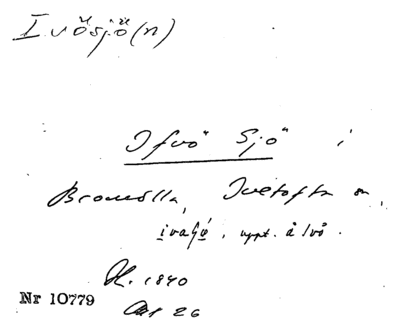 Ivösjö(n)
Ifvö Sjö i
Bromölla, Ivetofta sn,
ivaſø, uppt. å Ivö.
K. 1840
Nr 10779
26